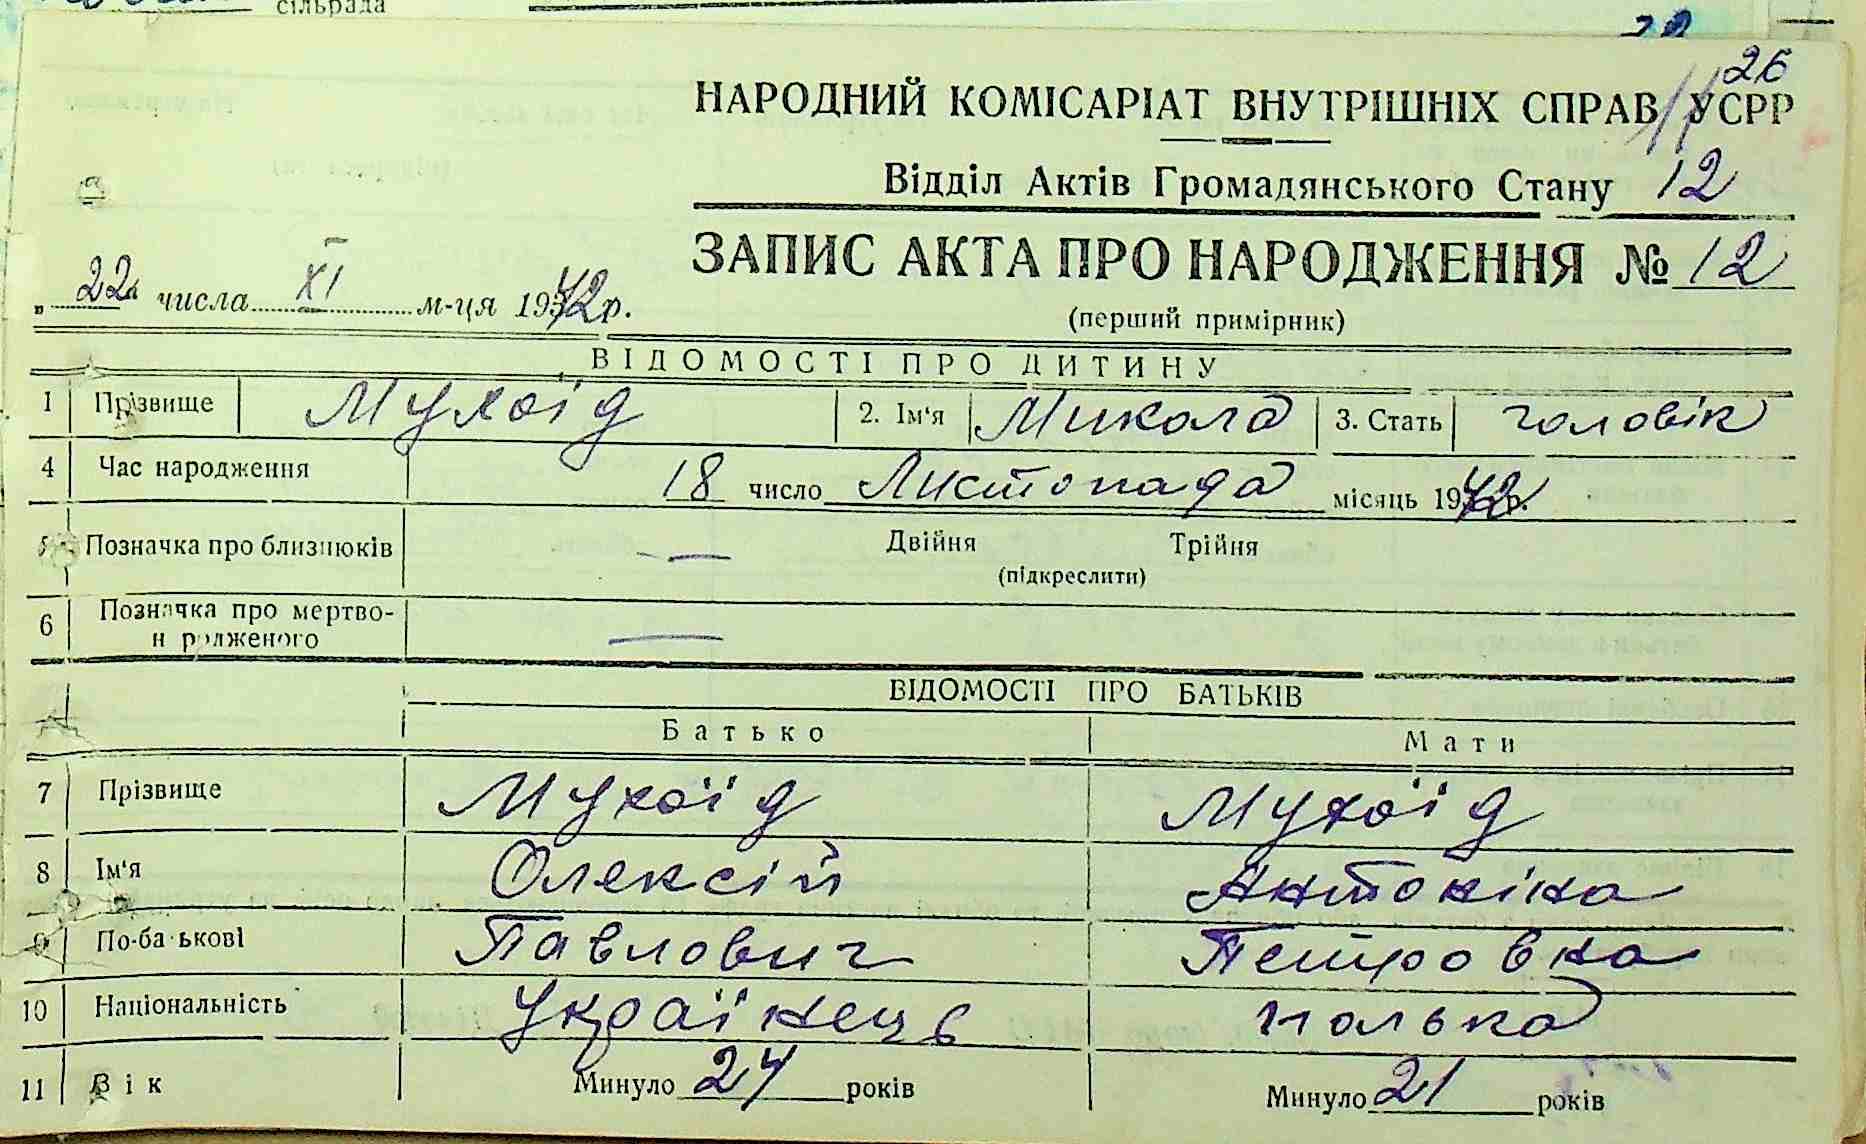 сільрада
26
НАРОДНИЙ КОМІСАРІАТ ВНУТРІШНІХ СПРАВ УСРР
Відділ Актів Громадянського Стану 12
ЗАПИС АКТА ПРО НАРОДЖЕННЯ № 12
(перший примірник)
„ 22 " числа XI м-ця 1942р.
ВІДОМОСТІ ПРО ДИТИНУ
1 Прізвище Мухоїд 2. Ім'я Микола 3. Стать чоловік
4 Час народження 18 число Листопада місяць 1942р.
5 Позначка про близнюків — Двійня Трійня
(підкреслити)
6 Позначка про мертво-
н родженого —
ВІДОМОСТІ ПРО БАТЬКІВ
Батько Мати
7 Прізвище Мухоїд Мухоїд
8 Ім'я Олексій Антокіна
9 По-батькові Павлович Петровна
10 Національність Українець полька
11 Вік Минуло 24 років Минуло 21 років